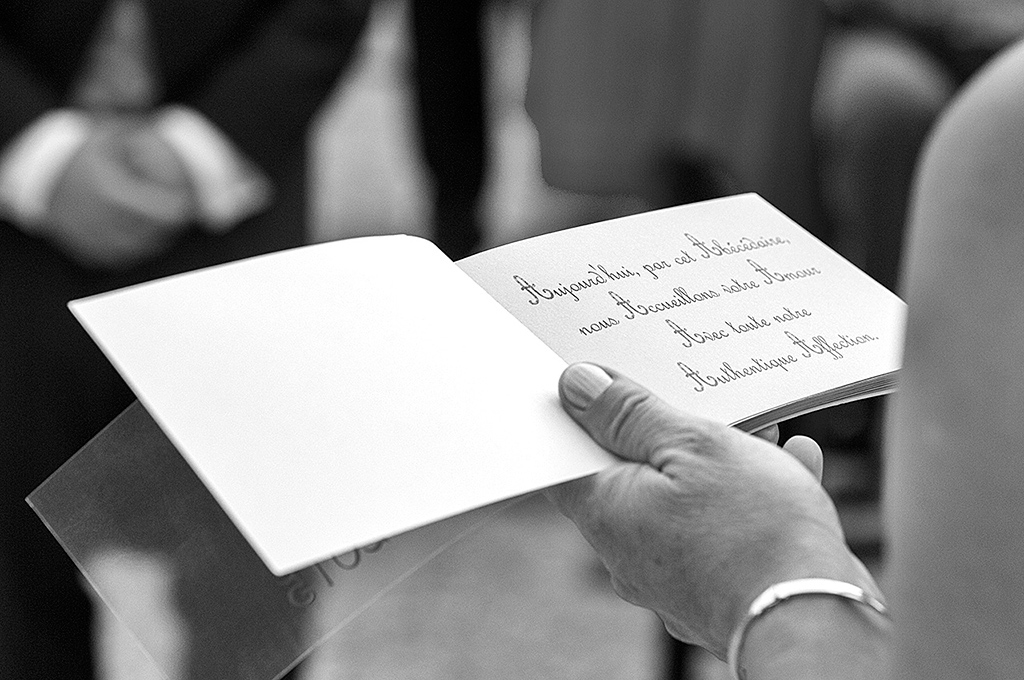 Aujourd'hui, par cet Abécédaire,
nous Accueillons votre Amour
Avec toute notre
Authentique Affection.